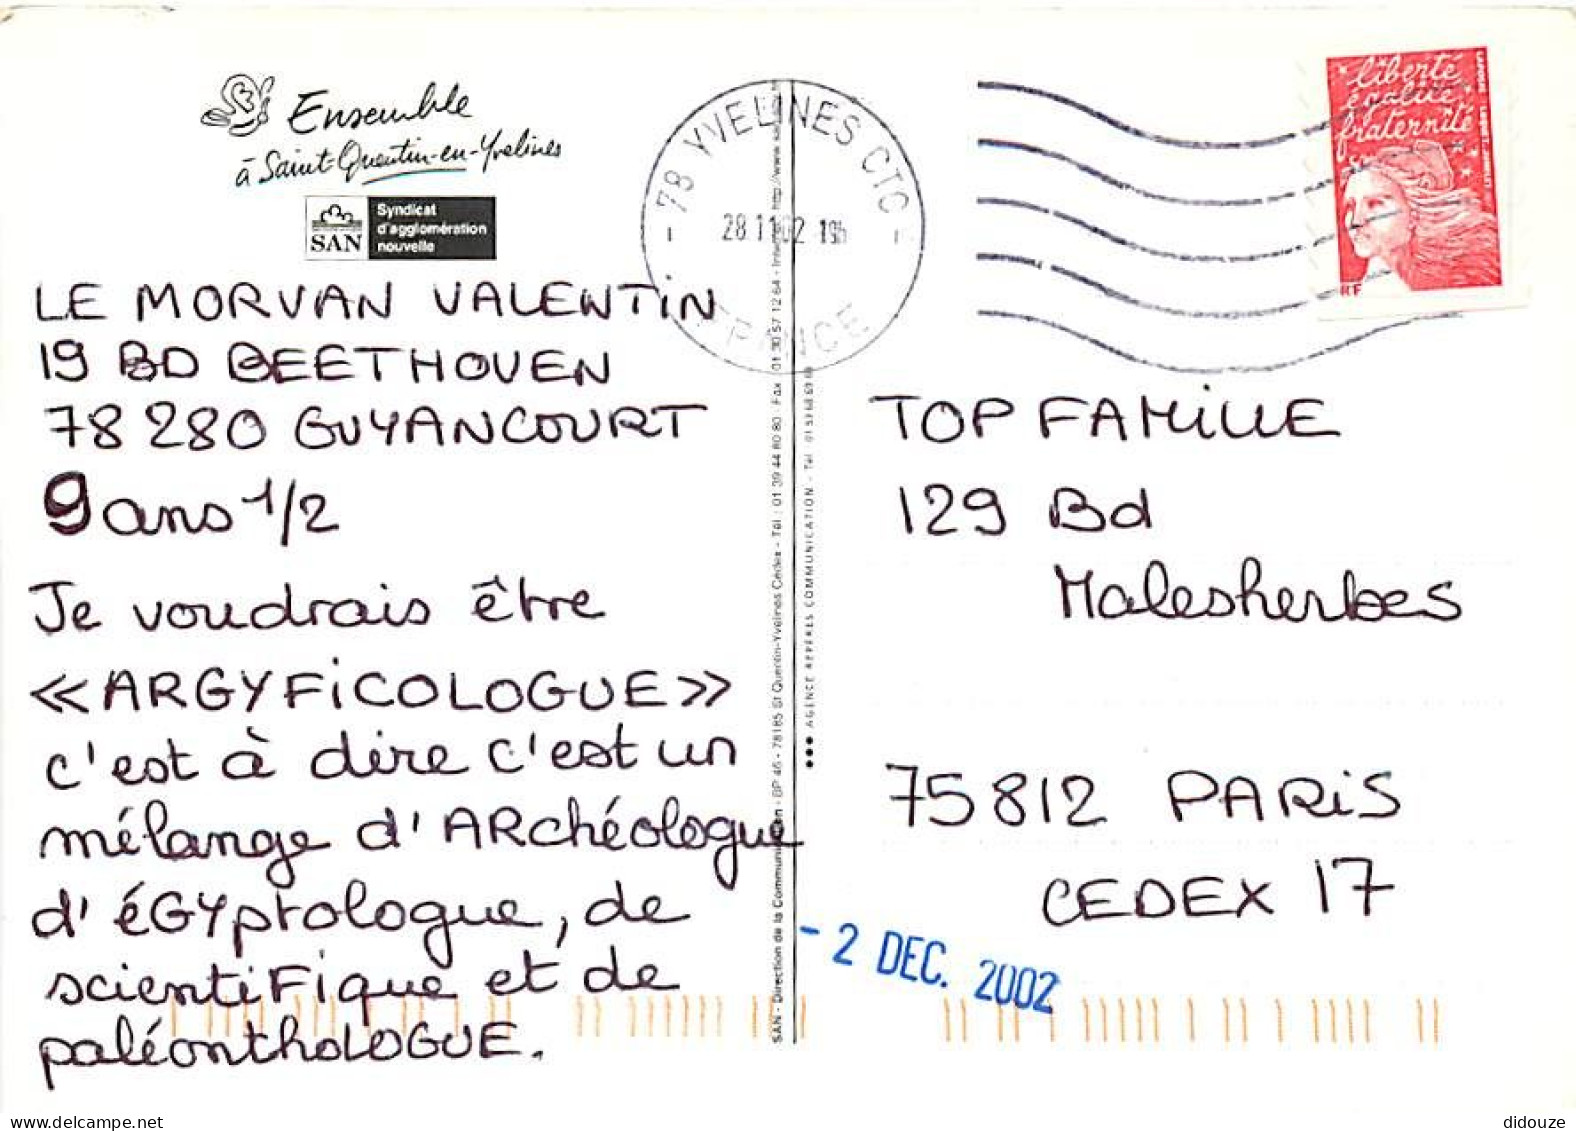 Ensemble
à Saint-Quentin-en-Yvelines
SAN
Syndicat
d'agglomération
nouvelle
LE MORVAN VALENTIN
19 BD BEETHOVEN
78 280 GUYANCOURT
9 ans 1/2
Je voudrais être
«ARGYFICOLOGUE»
c'est à dire c'est un
mélange d'ARchéologue
d'éGYptologue, de
scientiFique et de
paléonthoLOGUE.
SAN - Direction de la Communication - BP 46 - 78185 St Quentin-Yvelines Cédex - Tél : 01 39 44 80 80 - Fax : 01 30 57 12 64 - Internet : http://www.
••• AGENCE REPÈRES COMMUNICATION - Tél :
- 78 YVELINES CTC -
28.11.02 19h
FRANCE
liberté
égalité
fraternité
RF
TOP FAMILLE
129 Bd
Malesherbes
75812 PARIS
CEDEX 17
- 2 DEC. 2002
didouze